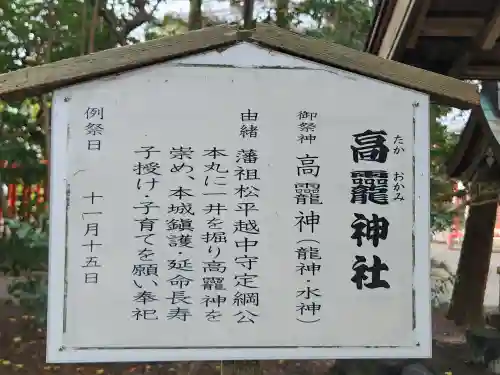 高靇神社
たか おかみ
御祭神 高靇神（龍神・水神）
由緒 藩祖松平越中守定綱公
本丸に一井を掘り高靇神を
崇め、本城鎮護・延命長寿
子授け・子育てを願い奉祀
例祭日 十一月十五日